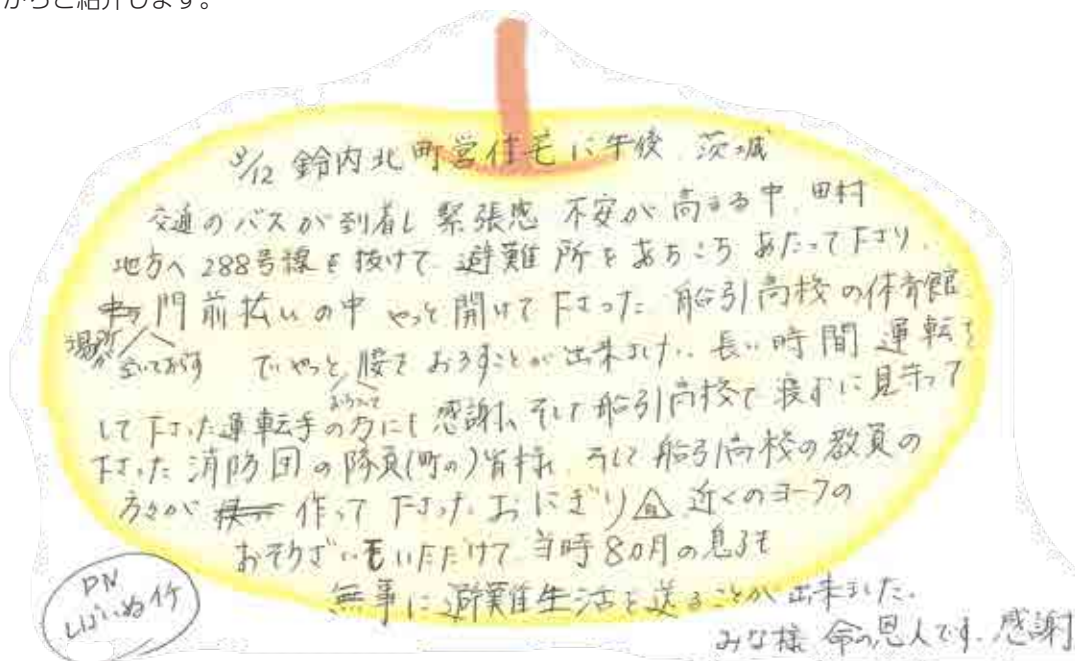 からご紹介します。
3/12 鈴内北町営住宅に午後 茨城
交通のバスが到着し 緊張感 不安が高まる中、田村
地方へ 288号線を抜けて 避難所をあちこち あたって下さり、
門前払いの中 やっと開けて下さった 船引高校の体育館
場所が空いておらず
でやっと 腰をおろすことが出来ました。長い時間 運転を
して下さった運転手の方にも感謝。そして船引高校で寝ずに見守って
下さった消防団の隊員(町の)皆様、そして船引高校の教員の
方々が 作って下さった おにぎり 近くのヨークの
おそうざいもいただけて 当時8カ月の息子も
無事に避難生活を送ることが出来ました。
みな様 命の恩人です。感謝
PN
しばいぬ